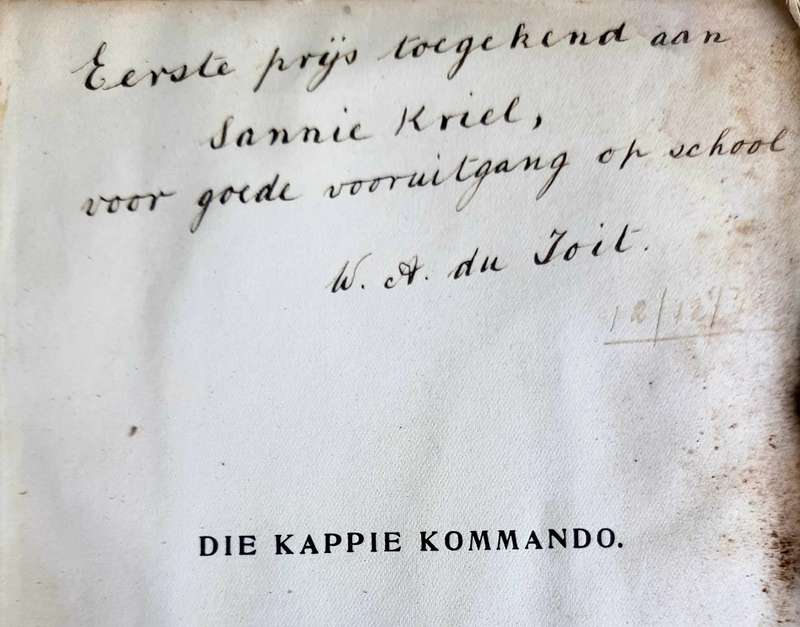 Eerste prijs toegekend aan
Sannie Kriel,
voor goede vooruitgang op school
W. A. du Toit.
DIE KAPPIE KOMMANDO.